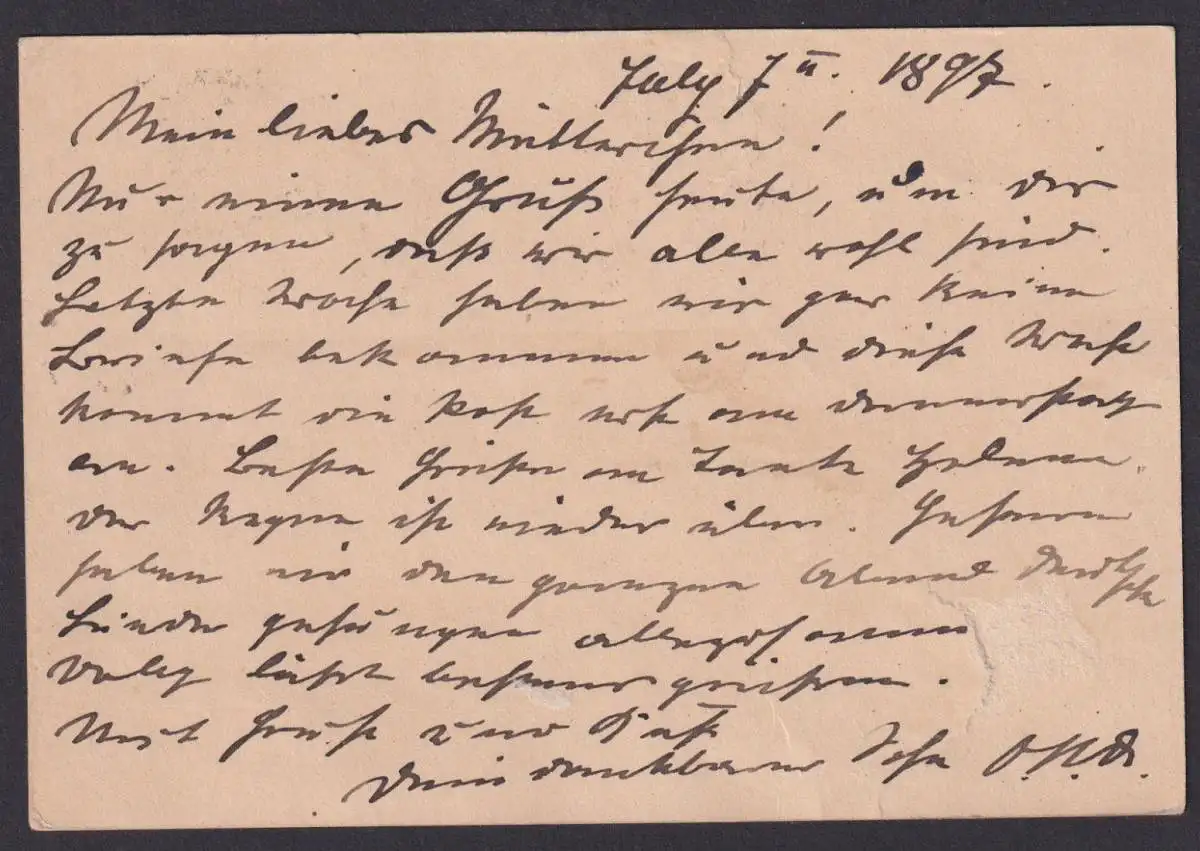 July 7ᵗʰ. 1897.
Mein liebes Mütterchen!
Nur einen Gruß heute, um dir
zu sagen, daß wir alle wohl sind.
Letzte Woche haben wir gar keine
Briefe bekommen und diese Woche
kommt die Post erst am Donnerstag
an. Beste Grüße an Tante Helene.
Der Regen ist wieder über. Gestern
haben wir den ganzen Abend deutsche
Lieder gesungen
läßt bestens grüßen.
Mit Gruß und Kuß
Dein dankbarer Sohn